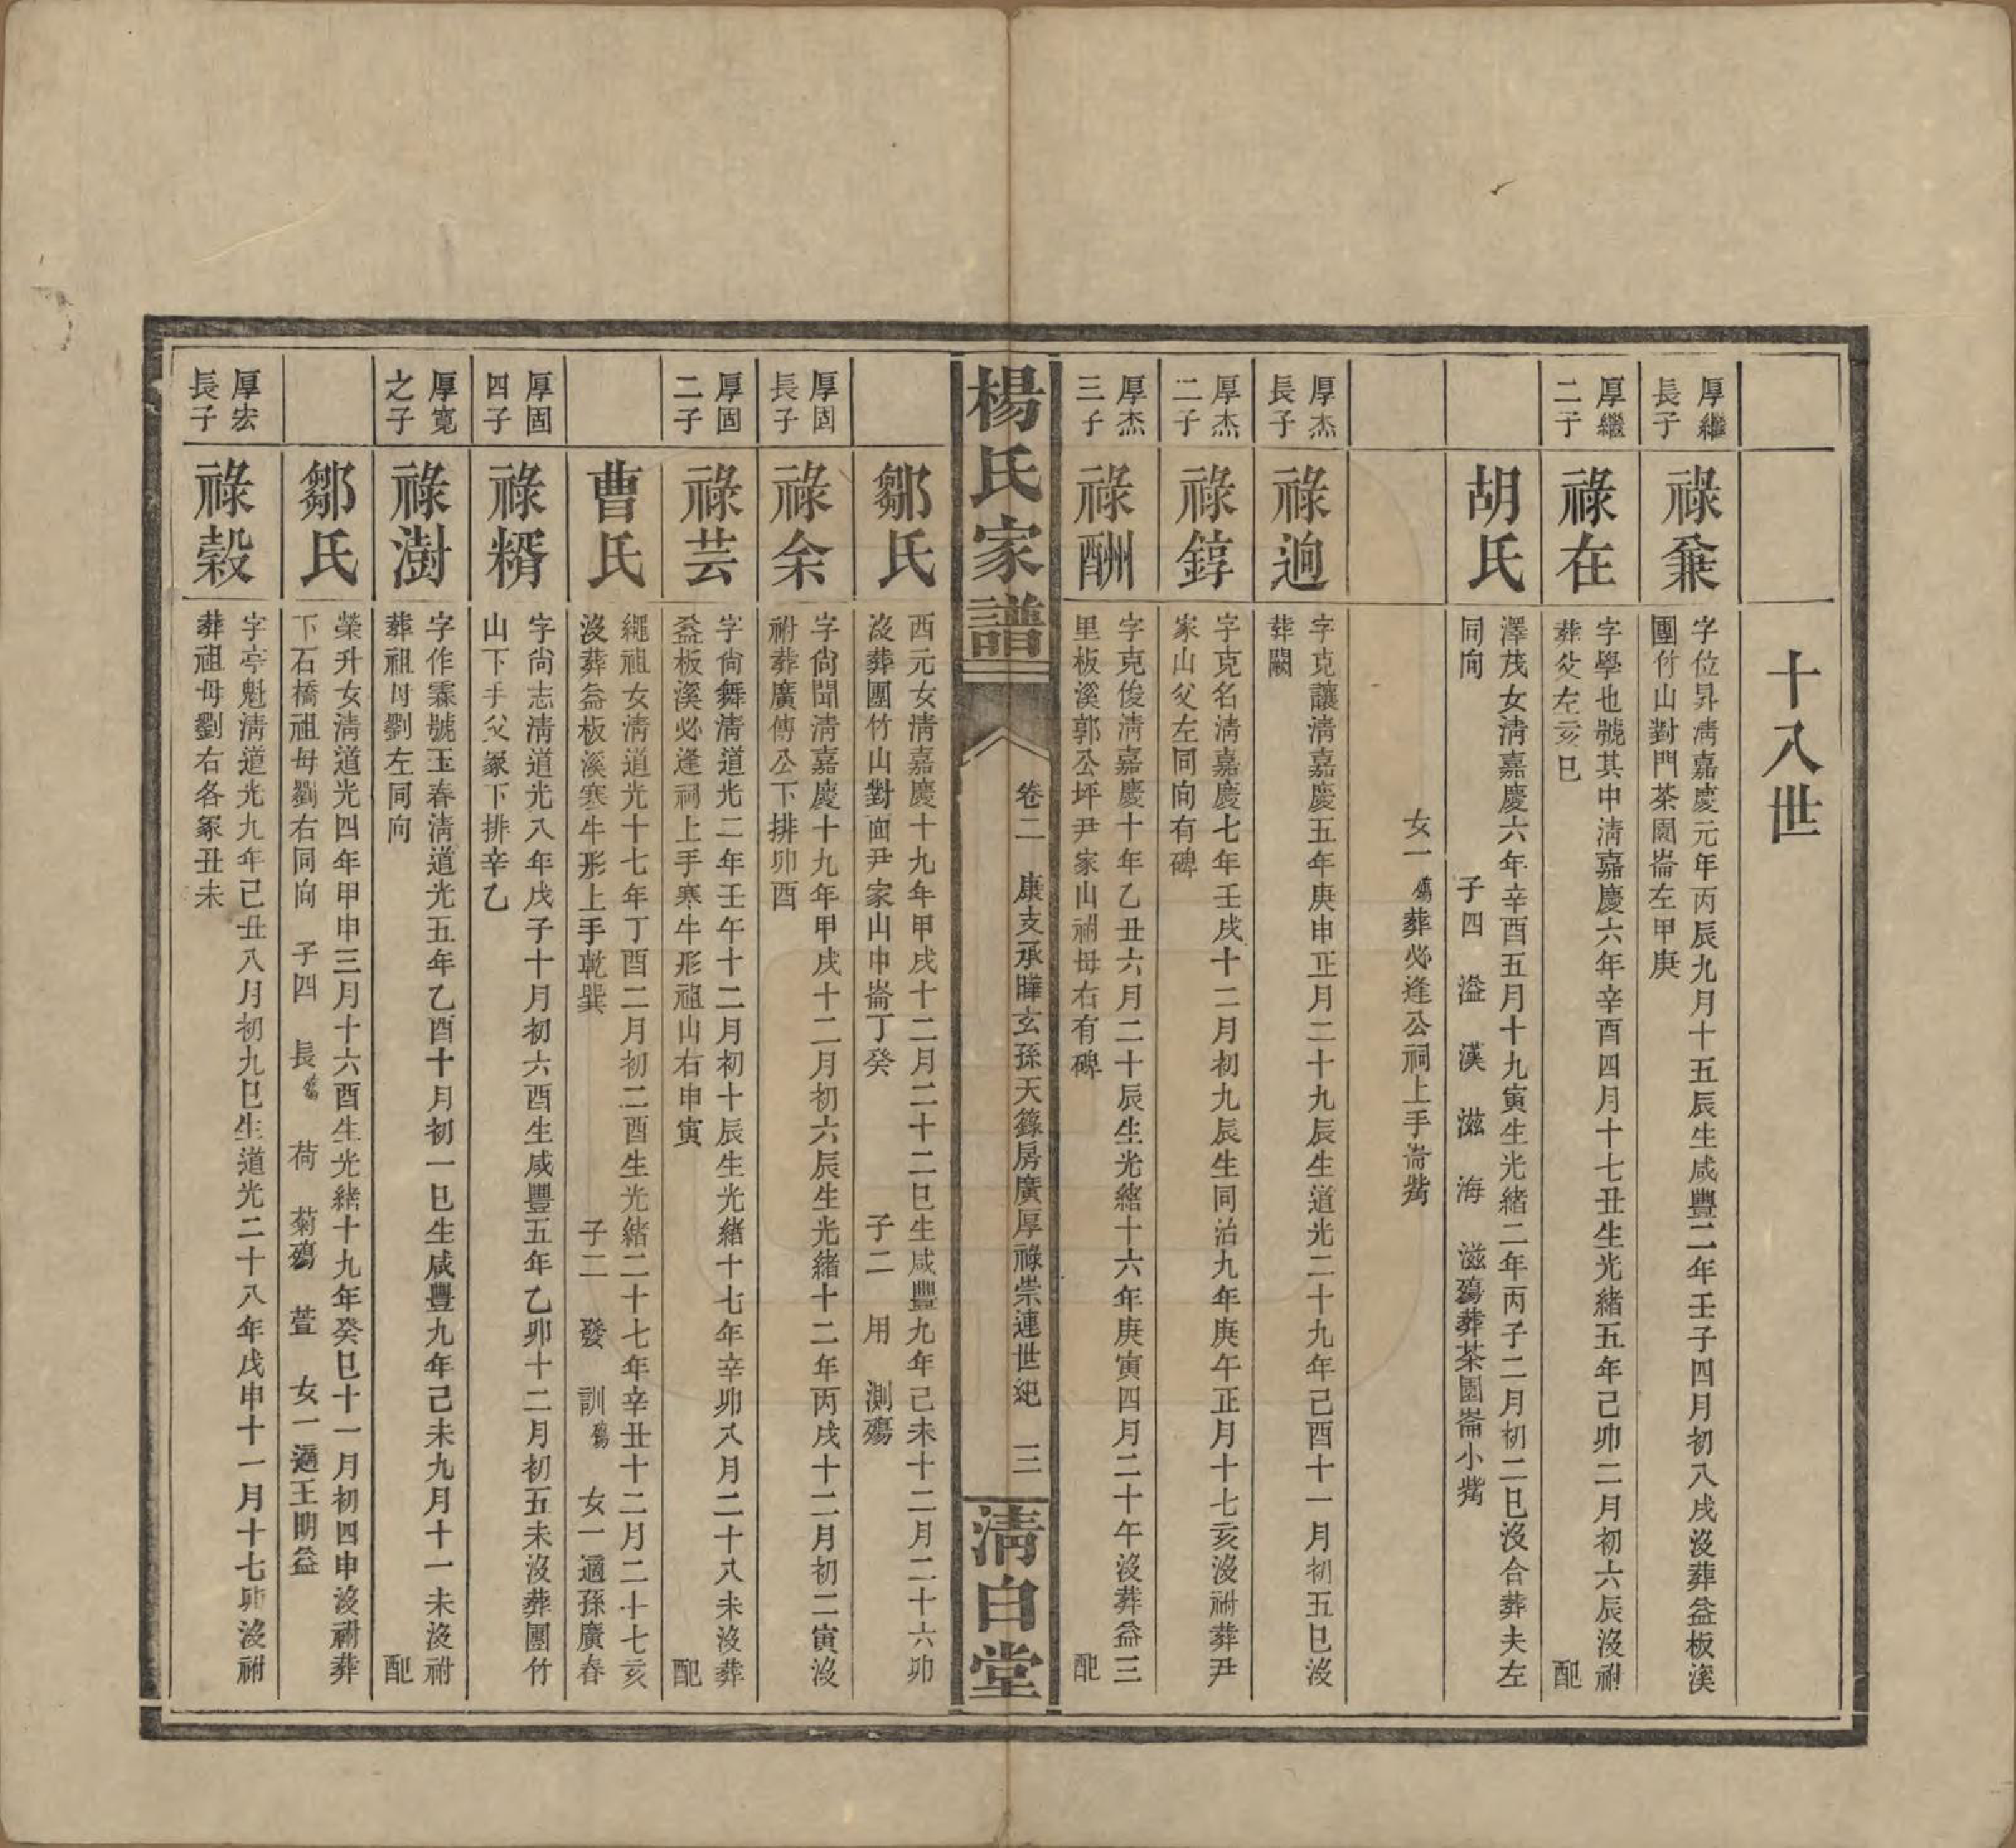 十八世
厚繼長子
祿兼
字位昇淸嘉慶元年丙辰九月十五辰生咸豐二年壬子四月初八戌沒葬益板溪
團竹山對門茶園崙左甲庚
厚繼二子
祿在
字學也號其中淸嘉慶六年辛酉四月十七丑生光緖五年己卯二月初六辰沒祔
葬父左亥巳　配
胡氏
澤茂女淸嘉慶六年辛酉五月十九寅生光緖二年丙子二月初二巳沒合葬夫左
同向　子四　溢　漢　滋　海　滋殤葬茶園崙小嘴
女一殤葬必逢公祠上手崙嘴
厚杰長子
祿逈
字克讓淸嘉慶五年庚申正月二十九辰生道光二十九年己酉十一月初五巳沒
葬闕
厚杰二子
祿錞
字克名淸嘉慶七年壬戌十二月初九辰生同治九年庚午正月十七亥沒祔葬尹
家山父左同向有碑
厚杰三子
祿酬
字克俊淸嘉慶十年乙丑六月二十辰生光緖十六年庚寅四月二十午沒葬益三
里板溪郭公坪尹家山祔母右有碑　配
楊氏家譜
卷二　康支承曄玄孫天籙房廣厚祿崇連世紀　三
淸白堂
鄒氏
西元女淸嘉慶十九年甲戌十二月二十二巳生咸豐九年己未十二月二十六卯
沒葬團竹山對面尹家山中崙丁癸　子二　用　測殤
厚固長子
祿余
字尙聞淸嘉慶十九年甲戌十二月初六辰生光緖十二年丙戌十二月初二寅沒
祔葬廣傳公下排卯酉
厚固二子
祿芸
字尙舞淸道光二年壬午十二月初十辰生光緖十七年辛卯八月二十八未沒葬
益板溪必逢祠上手寒牛形祖山右申寅　配
曹氏
繩祖女淸道光十七年丁酉二月初二酉生光緖二十七年辛丑十二月二十七亥
沒葬益板溪寒牛形上手乾巽　子二　發　訓殤　女一適孫廣春
厚固四子
祿糈
字尙志淸道光八年戊子十月初六酉生咸豐五年乙卯十二月初五未沒葬團竹
山下手父冢下排辛乙
厚寬之子
祿澍
字作霖號玉春淸道光五年乙酉十月初一巳生咸豐九年己未九月十一未沒祔
葬祖母劉左同向　配
鄒氏
榮升女淸道光四年甲申三月十六酉生光緖十九年癸巳十一月初四申沒祔葬
下石橋祖母劉右同向　子四　長殤　荷　菊殤　萱　女一適王明益
厚宏長子
祿穀
字亭魁淸道光九年己丑八月初九巳生道光二十八年戊申十一月十七卯沒祔
葬祖母劉右各冢丑未